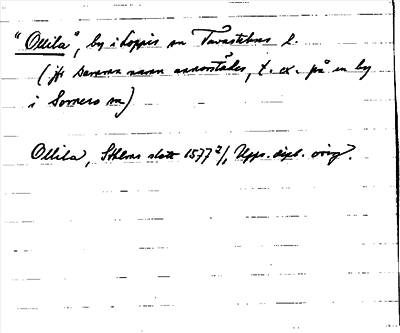 "Ollila", by i Loppis sn Tavastehus l.
(jfr samma namn annorstädes, t. ex. på en by
i Somero sn)
Ollila, Sthlms slott 1577 2/1, Upps. dipl. orig.